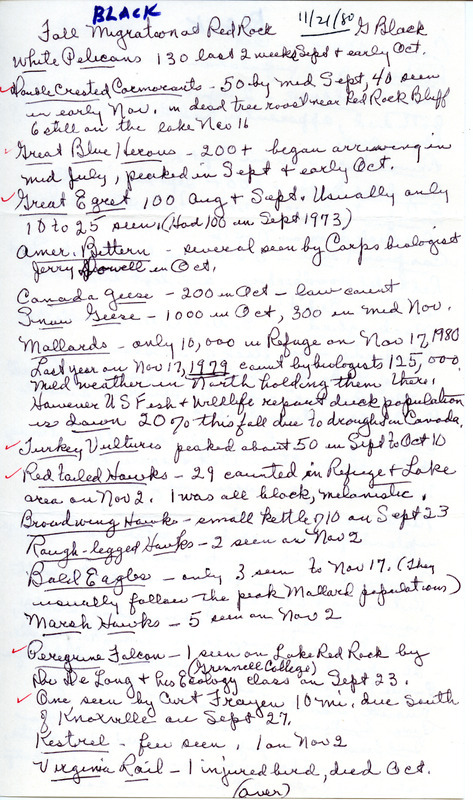 BLACK
Fall Migration at Red Rock 11/21/80 G Black
White Pelicans 130 last 2 weeks Sept + early Oct.
Double Crested Cormorants - 50 by mid Sept, 40 seen
in early Nov. in dead tree roost near Red Rock Bluff
6 still on the lake Nov 16
Great Blue Herons - 200+ began arriving in
mid July, peaked in Sept + early Oct.
Great Egret 100 Aug + Sept. Usually only
10 to 25 seen. (Had 100 in Sept 1973)
Amer. Bittern - several seen by Corps biologist
Jerry Dowell in Oct.
Canada Geese - 200 in Oct - low count
Snow Geese - 1000 in Oct, 300 in mid Nov.
Mallards - only 10,000 in Refuge on Nov 17, 1980
Last year on Nov 17, 1979 count by biologists 125,000.
Mild weather in North holding them there.
However US Fish + Wildlife report duck population
is down 20% this fall due to drought in Canada.
Turkey Vultures peaked about 50 in Sept to Oct 10
Red tailed Hawks - 29 counted in Refuge + Lake
area on Nov 2. 1 was all black, melanistic.
Broadwing Hawks - small kettle of 10 on Sept 23
Rough-legged Hawks - 2 seen on Nov 2
Bald Eagles - only 3 seen to Nov 17. (They
usually follow the peak Mallard populations)
Marsh Hawks - 5 seen on Nov 2
Peregrine Falcon - 1 seen on Lake Red Rock by
(Grinnell College)
Dr De Long + his Ecology class on Sept 23.
One seen by Curt Frazen 10 mi. due South
of Knoxville on Sept 27.
Kestrel - few seen, 1 on Nov 2
Virginia Rail - 1 injured bird, died Oct.
(over)